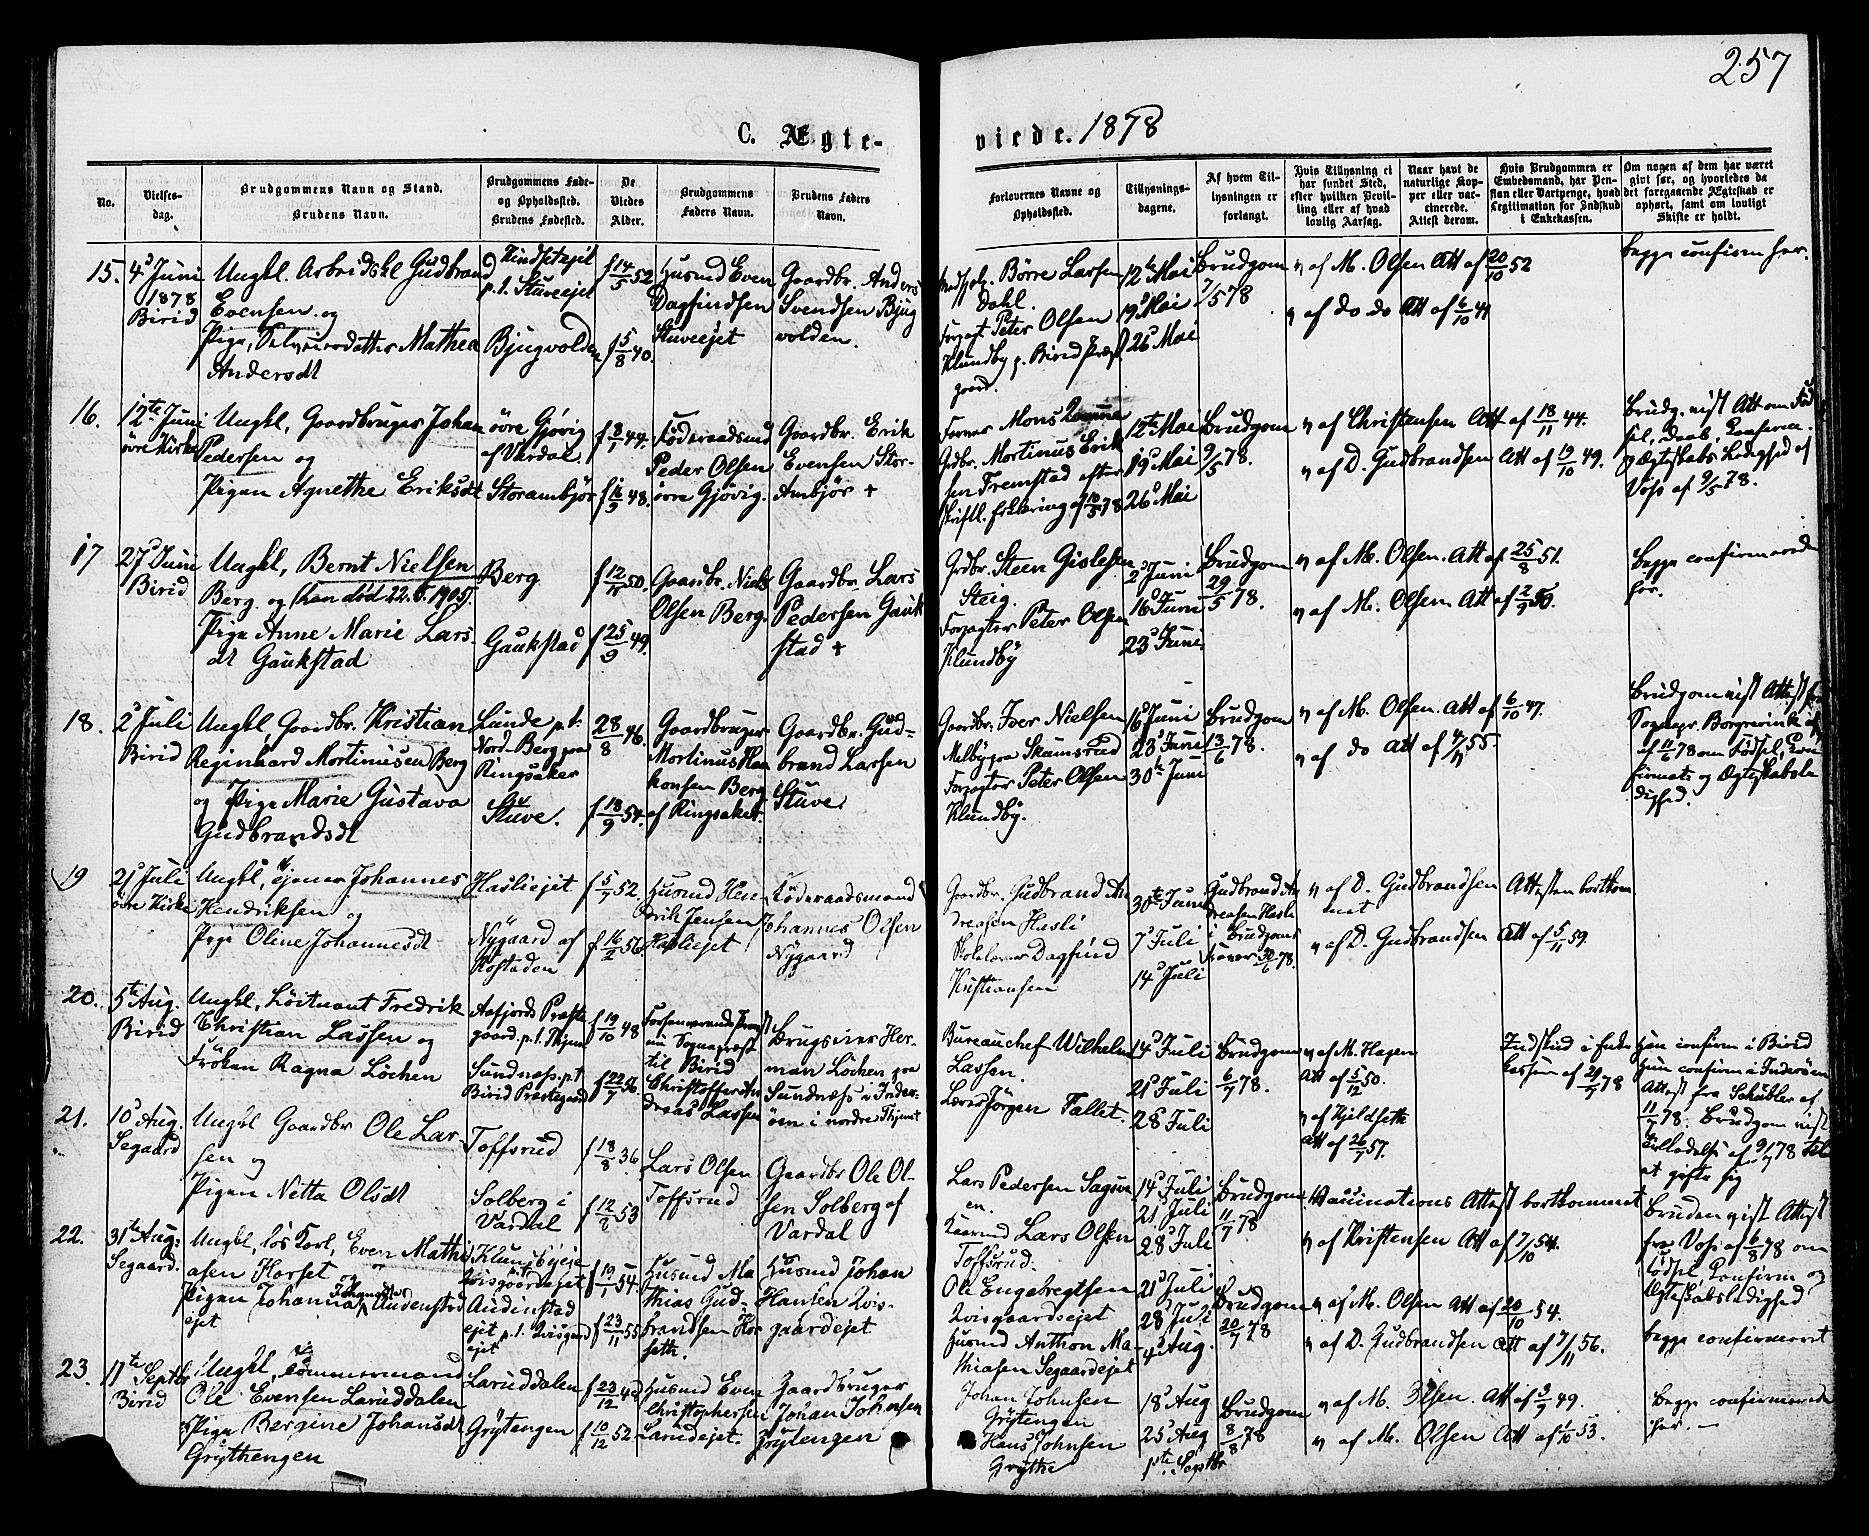 257
C. Ægte-
viede. 1878
No.
Vielses-
dag.
Brudgommens Navn og Stand.
Brudens Navn.
Brudgommens Føde-
og Opholdssted.
Brudens Fødested.
De
Viedes
Alder.
Brudgommens
Faders Navn.
Brudens Faders
Navn.
Forlovernes Navne og
Opholdssted.
Tillysnings-
dagene.
Af hvem Til-
lysningen er
forlangt.
Hvis Tillysning ei
har fundet Sted,
efter hvilken Bevil-
ling eller af hvad
lovlig Aarsag.
Naar havt de
naturlige Kop-
per eller vac-
cinerede.
Attest derom.
Hvis Brudgommen er
Embedsmand, har Pen-
sion eller Vartpenge, hvad
Legitimation for Indskud
i Enkekassen.
Om nogen af dem har været
gift før, og hvorledes da
det foregaaende Ægteskab er
ophørt, samt om lovligt
Skifte er holdt.
15.
4d Juni
1878
Birid
Ungkl. Arbeidskl Gudbrand
Evensen og
Pige, Mathea
Andersdt
p.t. Stuveejet
Bjugvolden
f 14/5 52
f 5/8 40.
Husmd Even
Dagfindsen
Stuveejet
Gaardbr. Anders
Svendsen Bjug
volden.
Børre Larsen
Dahl.
Peter Olsen
Klundby p. Birid Præst
gaard.
12te Mai
19d Mai
26d Mai
Brudgom
7/5 78
v af M. Olsen Att af 20/10 52
v af do do Att af 6/10 41
begge confirm her.
16.
12te Juni
øvre Kirke
Ungkl, Gaardbruger Johan
Pedersen og
Pigen Agnethe Eriksdt
øvre Gjøvig
af Vardal.
Storambjør
f 8/7 44.
f 16/5 48.
Føderaadsmd
Peder Olsen
øvre Gjøvig.
Gaardbr. Erik
Evensen Stor-
Ambjør +
Mons
Grdbr. Mortinus Erik
sen Fremstad efter
skriftl. Erklæring af 10/5 78
12te Mai
19d Mai
26d Mai
Brudgom
9/5 78.
v af Christensen Att af 18/11 44.
v af D. Gudbrandsen Att af 19/10 49.
Brudg. vist Att om Fød
sel, Daab, Confirm.
og Ægteskabs Ledighed af
Voss af 9/5 78.
17
27d Juni
Birid
Ungkl, Bernt Nielsen
Berg og (han død 22.5.1905).
Pige Anne Marie Lars
dt Gaukstad
Berg
Gaukstad
f 12/4 50.
f 25/9 49.
Gaardbr. Niels
Olsen Berg.
Gaardbr. Lars
Pedersen Gauk
stad +
Grdbr. Steen Gislesen
Steig.
Forpagter Peter Olsen
Klundby
2d Juni
16d Juni
23d Juni
Brudgom
29/5 78.
v af M. Olsen. Att af 25/8 51.
v af M. Olsen Att af 2/9 50.
begge confirmerede
her.
18.
2d Juli
Birid
Ungkl, Gaardbr. Kristian
Reginhard Mortinusen Berg
og Pige Marie Gustava
Gudbrandsdt
Lunde p.t.
Nord-Berg paa
Ringsaker
Stuve.
28/8 46.
f 18/9 54.
Gaardbruger
Mortinus Haa
konsen Berg
af Ringsaker.
Gaardbr. Gud-
brand Larsen
Stuve
Gaardbr. Iver Nielsen
Melbye paa Skumsrud
Forpagter Peter Olsen
Klundby.
16d Juni
23d Juni
30te Juni
Brudgom
13/6 78.
v af M. Olsen. Att af 6/10 47.
v af do Att af 4/11 55.
Brudgom vist Attest fra
Sognepr. Borgrevink af
af 11/6 78 om Fødsel, Con
firmat. og Ægteskabsle
dighed.
19
21d Juli
øvre Kirke
Ungkl, Johannes
Hendriksen og
Pige Oline Johannesdt
Hasliejet
Nygaard af
f 5/7 52.
f 16/2 56.
Husmd Hen-
drik Jensen
Hasliejet
Føderaadsmand
Johannes Olsen
Nygaard
Gaardbr. Gudbrand An
dreasen Hasli
Skolelærer Dagfind
Kristiansen
30te Juni
7d Juli
14d Juli
Gudbrand An
dreasen Hasli
i Brudgoms
Navn 30/6 78.
v af D. Gudbrandsen Attesten bortkom
met
v af D. Gudbrandsen Att af 5/11 59.
20.
5te Aug.
Birid
Ungkl, Løitnant Fredrik
Christian Lassen og
Frøken Ragna Løchen
Aafjords Præste
gaard. p.t.
Sundnæss p.t
Birid Præstegaard
f 19/10 48
f 22/7 56
nu Sognepræst
til Birid
Christoffer An
dreas Lassen
Brugseier Her-
man Løchen paa
Sundnæss i Inder-
øen i nordre Thjemt
Bureauchef Wilhelm
Lassen.
Læreo Jørgen Fallet.
14d Juli
21d Juli
28d Juli
Brudgom
6/7 78.
v af M. Hagen
Att af 5/12 50.
v af Kjeldseth
Att af 26/7 57.
Indskud i Enke
kassen af 21/7 78
Han confirm i Birid
Hun confirm i Inderøen
Attest fra Schübler af
11/7 78. Brudgom vist
Tilladelse af 9/7 78 til
at gifte sig
21.
10d Aug.
Segaard
Ungkl Gaardbr Ole Lar-
sen og
Pigen Netta Olsdt
Toffsrud
Solberg i
Vardal
f 18/8 36
f 12/8 53
Lars Olsen
Toffsrud
Gaardbr Ole Ol-
sen Solberg af
Vardal
Lars Pedersen
en.
Lars Olsen
Toffsrud.
14d Juli
21d Juli
28d Juli
Brudgom
11/7 78
Vaccinations Attest bortkommet
v af Kristensen Att af 7/10 54.
Bruden vist Attest
fra Voss af 6/8 78 om
Fødsel, Confirm og
Ægteskabsledighed
22.
31te Aug.
Segaard.
Ungkl, løs Karl, Even Mathi
asen Horset og
Pigen Johanna Johansdtr Audenstad
ejet
Klundbyeje
Qvisgaardsejet
Audinstad
ejet p.t. Qvisgaard
ejet
f 19/1 54.
f 23/11 55
Husmd Ma
thias Gud-
brandsen Hor
sette.
Husmd Johan
Hansen Qvis-
gaardejet
Ole Engebregtsen
Qvisgaardsejet
Husmd Anthon Ma-
thiasen Segaardejet
21d Juli
28d Juli
4d Aug.
Brudgom
20/7 78
v af M. Olsen Att af 20/10 54.
v af D. Gudbrandsen Att af 7/11 56.
begge confirmeret
23.
11te Septbr
Birid
Ungkl, Tømmermand
Ole Evensen Laruddalen
Pige Bergine Johansdt
Grythengen
Laruddalen
Grytengen
f 23/12 42
f 10/12 52
Husmd Even
Christophersen
Larudejet.
Gaardbruger
Johan Johnsen
Grytengen
Johan Johnsen
Grytengen
Hans Johnsen
Grythe
18d Aug
25d Aug
1ste Septbr
Brudgom
8/8 78
v af M. Olsen. Att af 9/9 49.
v af M. Olsen Att af 1/10 53.
begge confirmerede
her. —